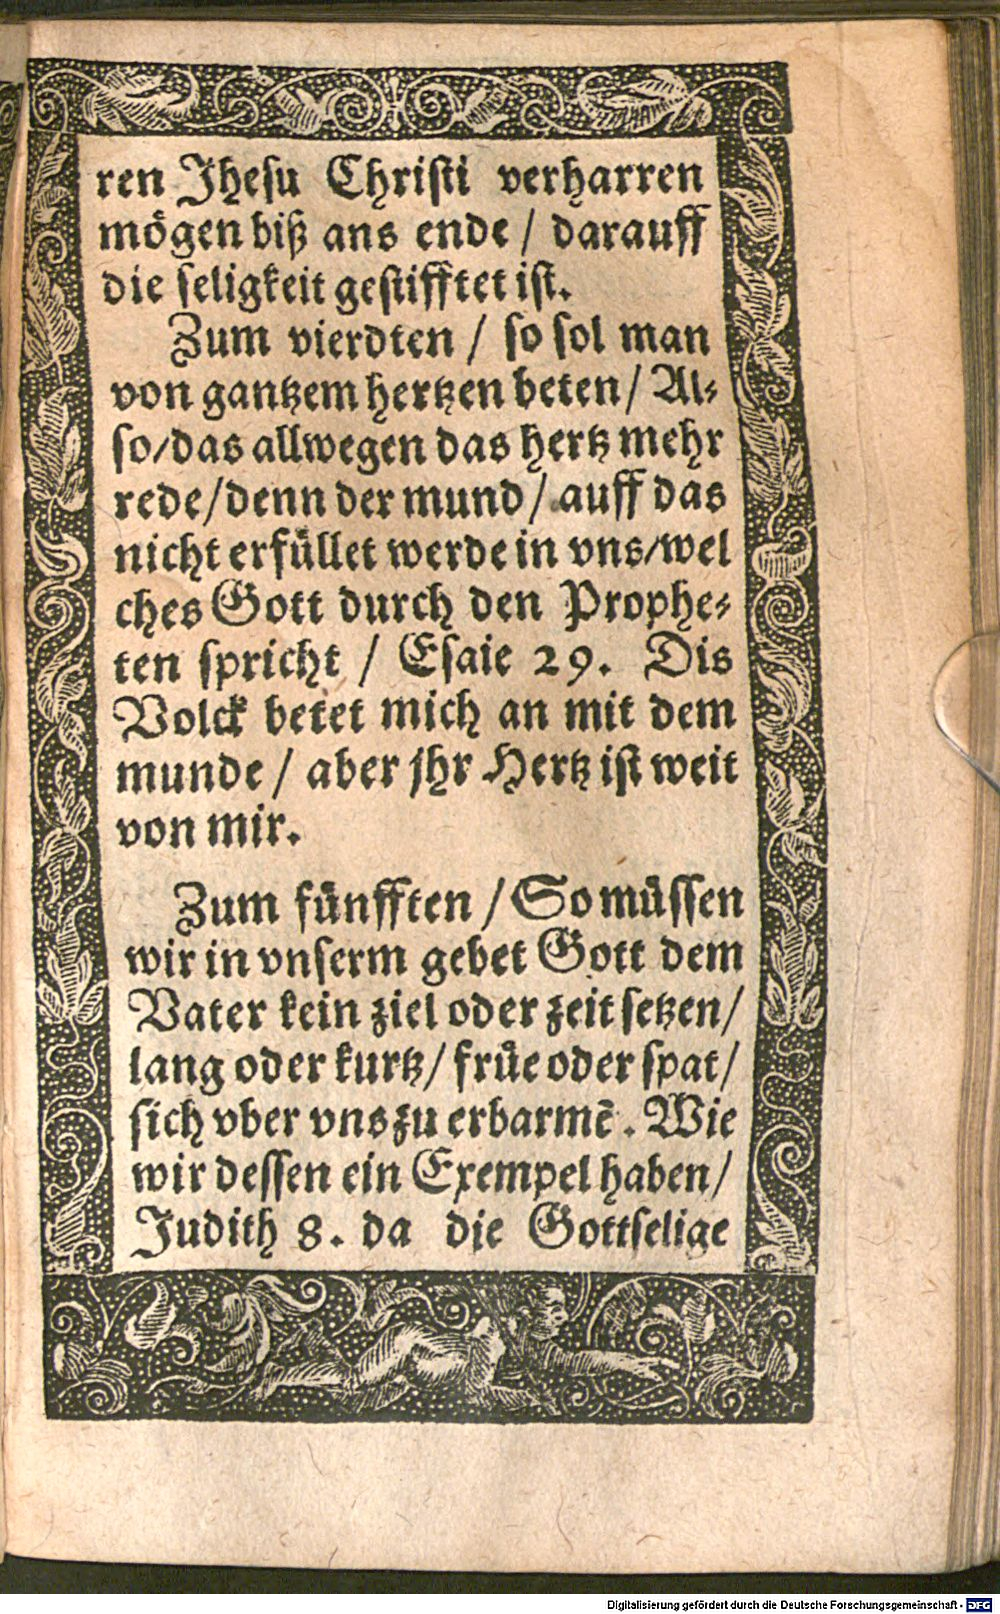 ren Jhesu Christi verharren
mögen biß ans ende / darauff
die seligkeit gestifftet ist.
Zum vierdten / so sol man
von gantzem hertzen beten / Al-
so/das allwegen das hertz mehr
rede/denn der mund / auff das
nicht erfüllet werde in vns/wel
ches Gott durch den Prophe-
ten spricht / Esaie 29. Dis
Volck betet mich an mit dem
munde / aber jhr Hertz ist weit
von mir.
Zum fünfften / So müssen
wir in vnserm gebet Gott dem
Vater kein ziel oder zeit setzen/
lang oder kurtz/ früe oder spat/
sich vber vns zu erbarmē. Wie
wir dessen ein Exempel haben/
Judith 8. da die Gottselige
Digitalisierung gefördert durch die Deutsche Forschungsgemeinschaft - DFG